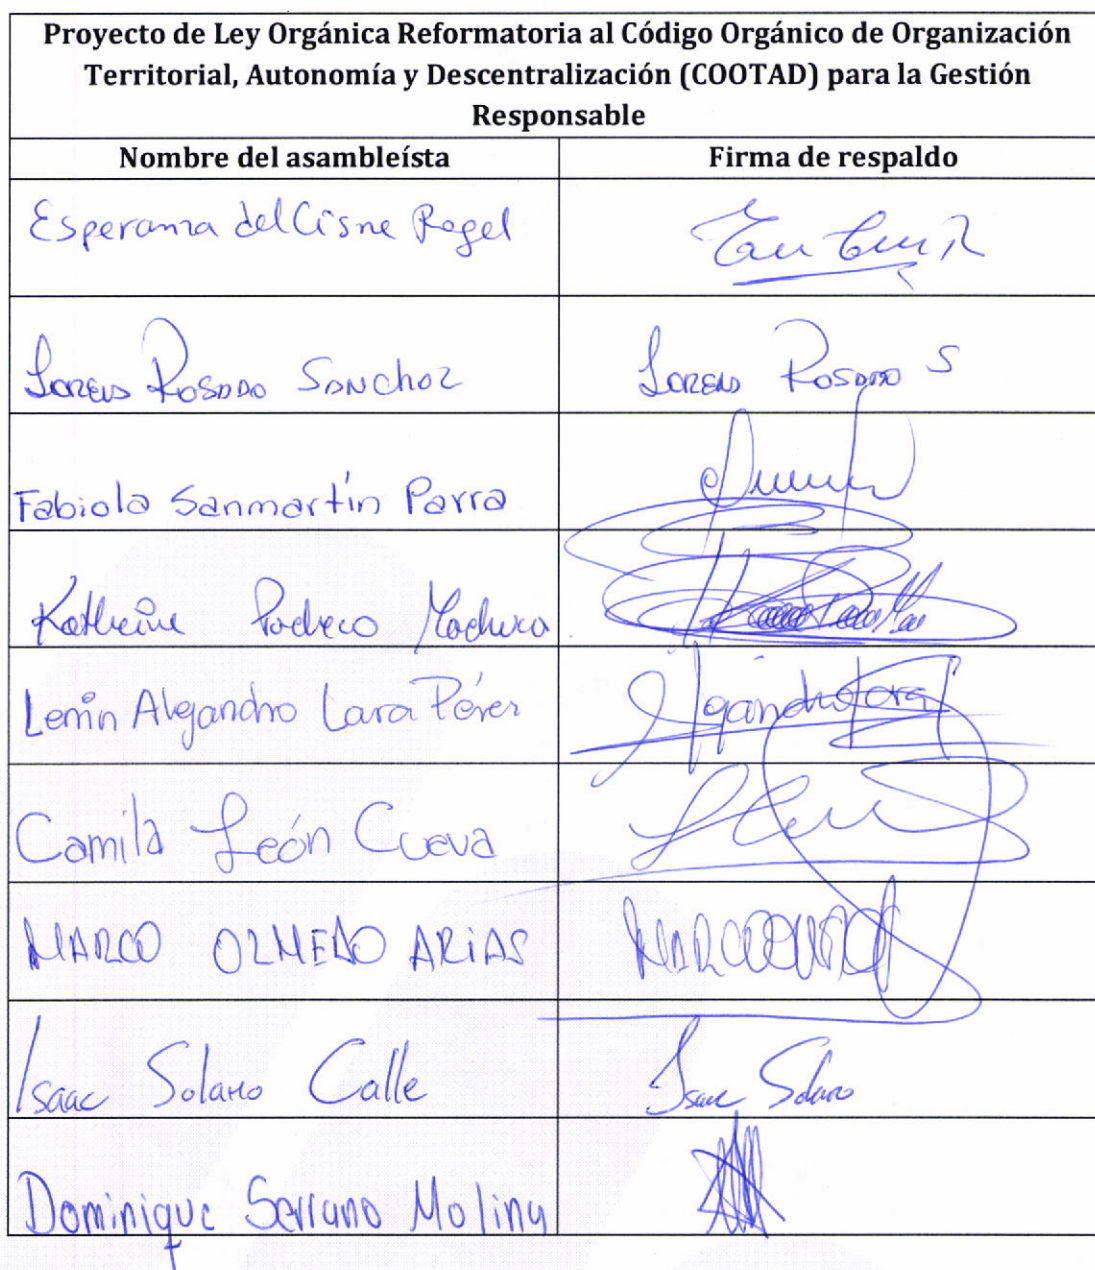 Proyecto de Ley Orgánica Reformatoria al Código Orgánico de Organización
Territorial, Autonomía y Descentralización (COOTAD) para la Gestión
Responsable
Nombre del asambleísta Firma de respaldo
Esperanza del Cisne Rogel
Lorena Rosado Sánchez Lorena Rosado S
Fabiola Sanmartín Parra
Katherine Pacheco Machuca
Lenin Alejandro Lara Pérez Alejandro Lara
Camila León Cueva
MARCO OLMEDO ARIAS
Isaac Solano Calle Isaac Solano
Dominique Serrano Molina